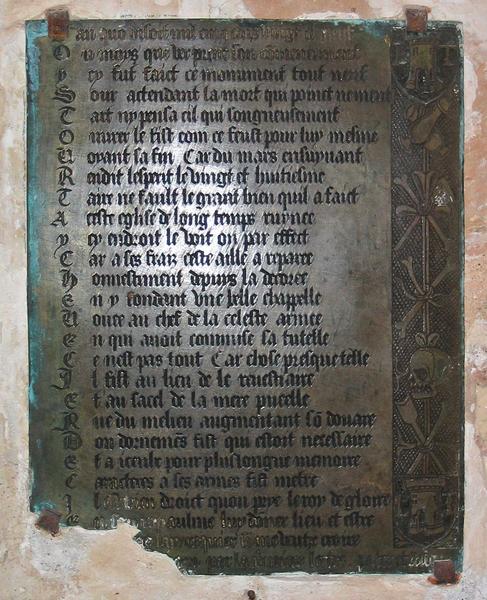 mil cinq
O u moys que ver prent son commencement
y cy fut faict ce monument tout neuf
S our actendant la mort qui poinct nement
T art ny pensa cil qui songneusement
O uurer le fist com ce feust pour luy mesme
U oyant sa fin Car du mars ensuyuant
R endit lesperit le vingt et huitiesme
T aire ne fault le grant bien quil a faict
A ceste eglise de long temps ruynee
y cy endroit le voit on par effect
C ar a ses fraiz ceste aille a reparee
H onnestement depuys la decoree
E n y fondant vne belle chapelle
U ouee au chef de la celeste armee
E n qui auoit commise sa tutelle
C e nest pas tout Car chose presque telle
I l fist au lieu de le reuestiaire
E t au sacel de la mere pucelle
R ue du melieu augmentant so douaire
D on dornemes fist qui estoit necessaire
E t a icculx pour plus longue memoire
C aracteres a ses armes fist mettre
I l droict quon prye le roy de gloire
luy donner lieu et estre